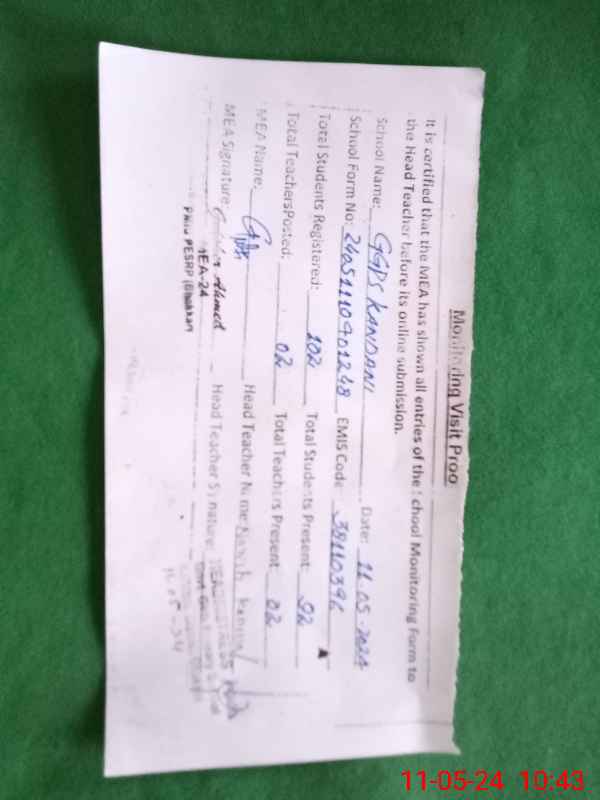 Monitoring Visit Proo
It is certified that the MEA has shown all entries of the School Monitoring Form to
the Head Teacher before its online submission.
School Name: GGPS KANDANI Date: 11.05.2024
School Form No: 2405111090124 8 EMIS Code: 38110396
Total Students Registered: 102 Total Students Present: 92
Total TeachersPosted: 02 Total Teachers Present: 02
MEA Name: Head Teacher Name:
MEA Signature: Ahmed Head Teacher Signature:
MEA-24
PMIU PESRP (Bhakkar)
11-05-24 10:43